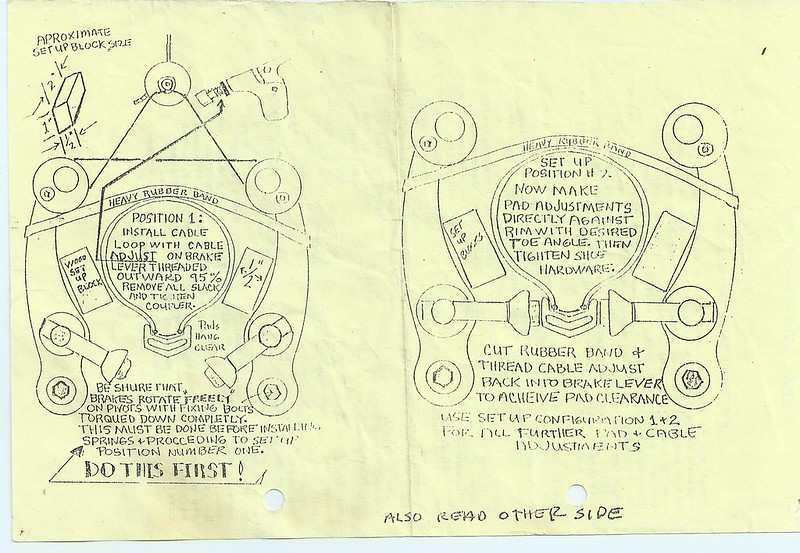 APROXIMATE
SET UP BLOCK SIZE
2"
1"
1/2"
HEAVY RUBBER BAND
POSITION 1:
INSTALL CABLE
LOOP WITH CABLE
ADJUST ON BRAKE
LEVER THREADED
OUTWARD 95%
REMOVE ALL SLACK
AND TIGHTEN
COUPLER.
WOOD
SET
UP
BLOCK
1"
1/2"
PADS
HANG
CLEAR
BE SHURE THAT
BRAKES ROTATE "FREELY"
ON PIVOTS WITH FIXING BOLTS
TORQUED DOWN COMPLETLY.
THIS MUST BE DONE BEFORE INSTALLING
SPRINGS + PROCCEDING TO SET UP
POSITION NUMBER ONE.
DO THIS FIRST!
HEAVY RUBBER BAND
SET UP
POSITION # 2.
NOW MAKE
PAD ADJUSTMENTS
DIRECTLY AGAINST
RIM WITH DESIRED
TOE ANGLE. THEN
TIGHTEN SHOE
HARDWARE.
SET
UP
BLOCKS
CUT RUBBER BAND &
THREAD CABLE ADJUST
BACK INTO BRAKE LEVER
TO ACHEIVE PAD CLEARANCE
USE SET UP CONFIGURATION 1+2
FOR ALL FURTHER PAD & CABLE
ADJUSTMENTS
ALSO READ OTHER SIDE